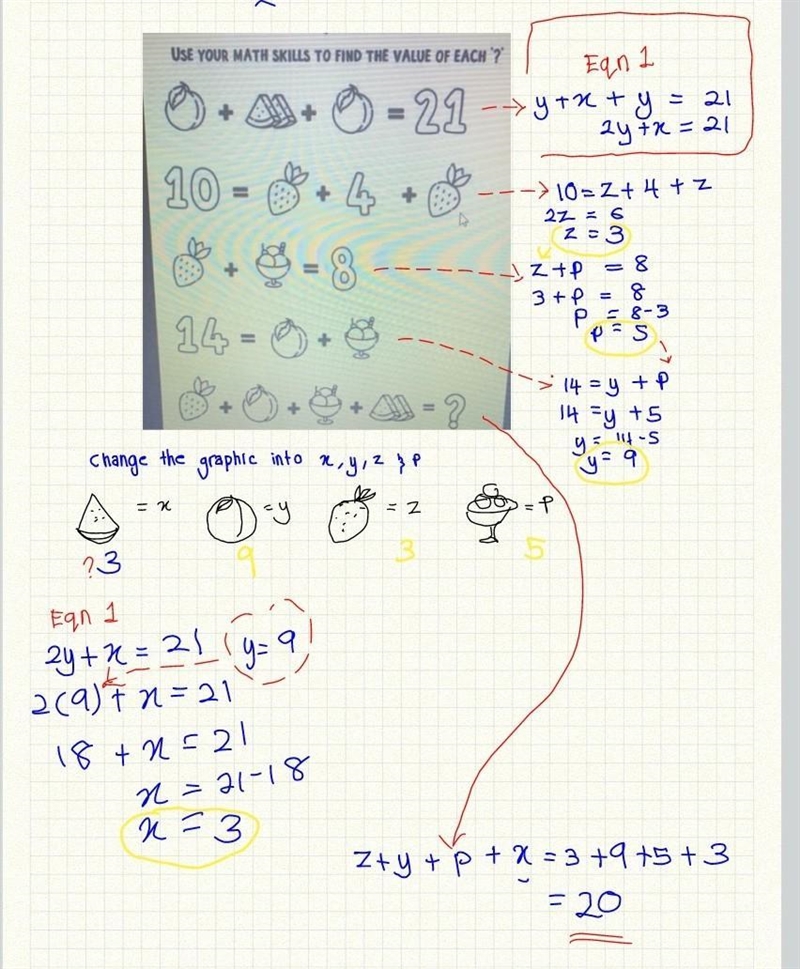 USE YOUR MATH SKILLS TO FIND THE VALUE OF EACH '?'
+ + = 21
10 = + 4 +
+ = 8
14 = +
+ + + = ?
Eqn 1
y + x + y = 21
2y + x = 21
10 = z + 4 + z
2z = 6
z = 3
z + p = 8
3 + p = 8
p = 8 - 3
p = 5
14 = y + p
14 = y + 5
y = 14 - 5
y = 9
Change the graphic into x, y, z & p
= x = y = z = p
? 3 9 3 5
Eqn 1
2y + x = 21 y = 9
2(9) + x = 21
18 + x = 21
x = 21 - 18
x = 3
z + y + p + x = 3 + 9 + 5 + 3
= 20